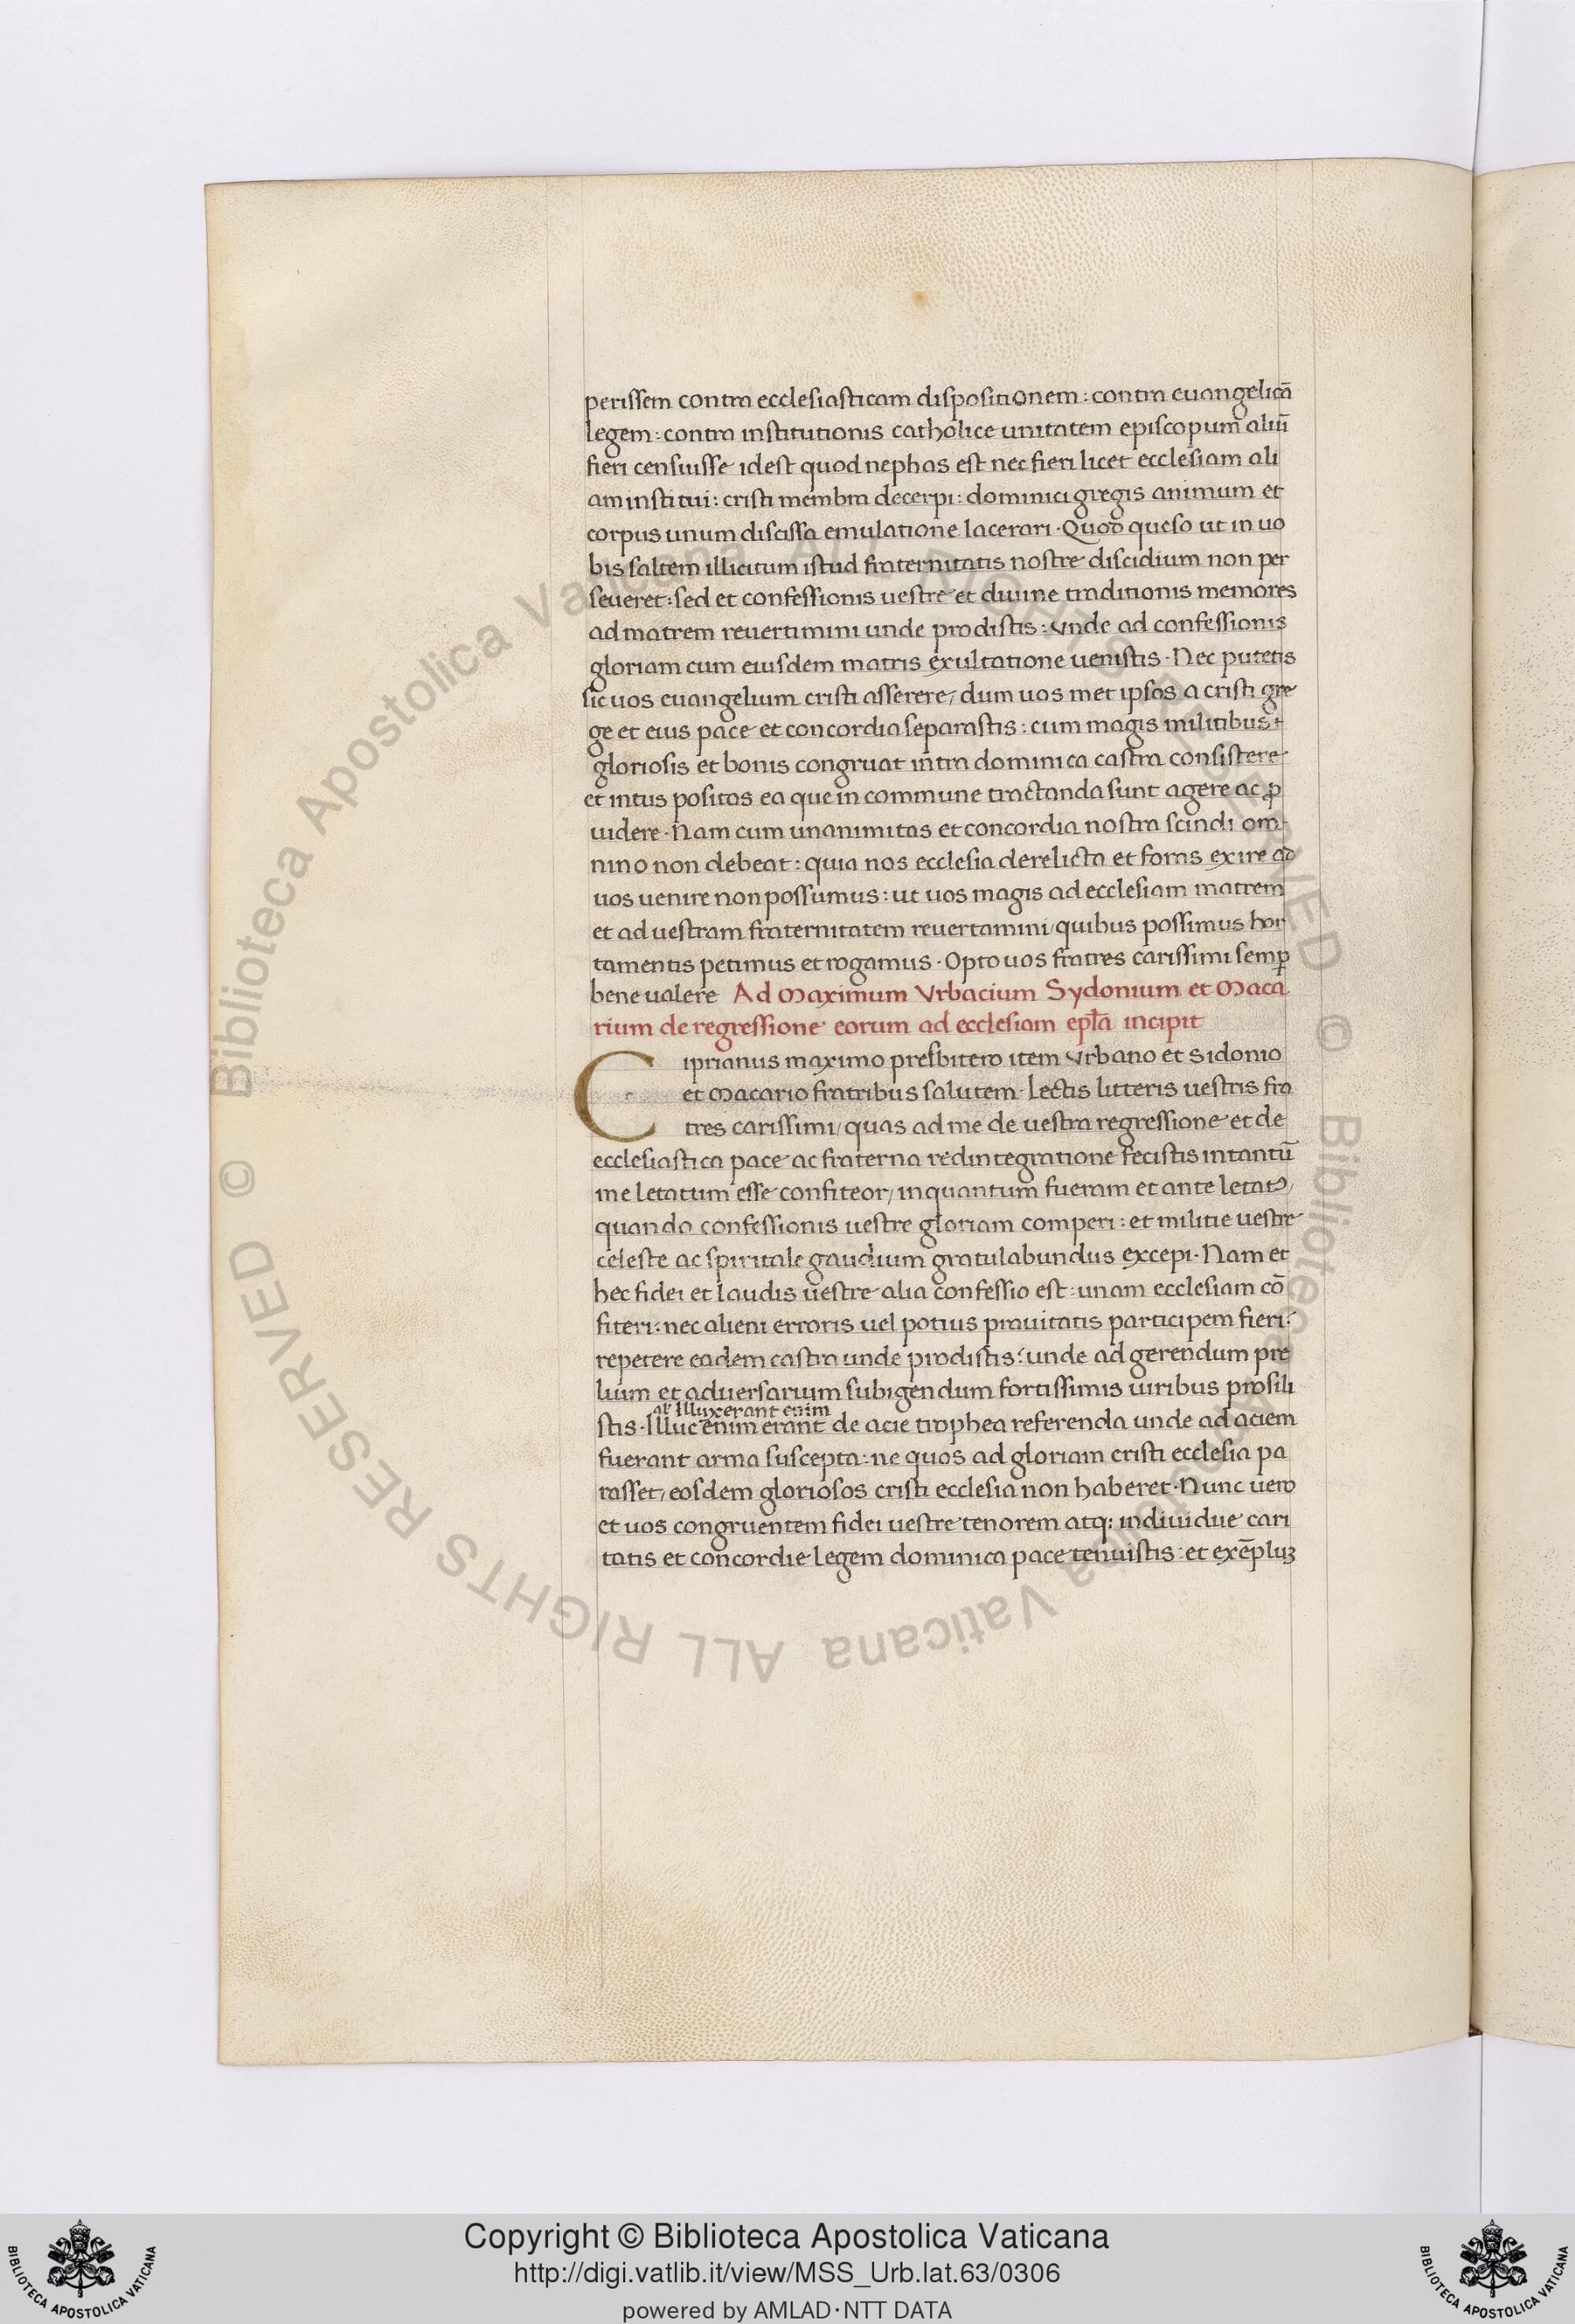 perissem contra ecclesiasticam dispositionem : contra euangelicā
legem : contra institutionis catholice unitatem episcopum aliū
fieri censuisse idest quod nephas est nec fieri licet ecclesiam ali
am institui : cristi membra decerpi : dominici gregis animum et
corpus unum discissa emulatione lacerari · Quod queso ut in uo
bis saltem illicitum istud fraternitatis nostre discidium non per
seueret : sed et confessionis uestre et diuine traditionis memores
ad matrem reuertimini unde prodistis : unde ad confessionis
gloriam cum eiusdem matris exultatione uenistis · Nec putetis
sic uos euangelium cristi asserere, dum uos met ipsos a cristi gre
ge et eius pace et concordia separastis : cum magis militibus
gloriosis et bonis congruat intra dominica castra consistere
et intus positas ea que in commune tractanda sunt agere ac ꝓ
uidere · Nam cum unanimitas et concordia nostra scindi om
nino non debeat : quia nos ecclesia derelicta et foras exire ad
uos uenire non possumus : ut uos magis ad ecclesiam matrem
et ad uestram fraternitatem reuertamini / quibus possimus hor
tamentis petimus et rogamus · Opto uos fratres carissimi semꝑ
bene ualere Ad Maximum Vrbacium Sydonium et Maca
rium de regressione eorum ad ecclesiam epl̄a incipit
Ciprianus maximo presbitero item Vrbano et Sidonio
et Macario fratribus salutem · Lectis litteris uestris fra
tres carissimi / quas ad me de uestra regressione et de
ecclesiastica pace ac fraterna redintegratione fecistis intantū
me letatum esse confiteor / inquantum fueram et ante letatꝰ /
quando confessionis uestre gloriam comperi : et militie uestre
celeste ac spiritale gaudium gratulabundus excepi · Nam et
hec fidei et laudis uestre alia confessio est : unam ecclesiam cō
fiteri : nec alieni erroris uel potius prauitatis participem fieri :
repetere eadem castra unde prodistis : unde ad gerendum pre
lium et aduersarium subigendum fortissimis uiribus prosili
al' Illuxerant enim
stis · Illuc enim erant de acie trophea referenda unde ad aciem
fuerant arma suscepta : ne quos ad gloriam cristi ecclesia pa
rasset, eosdem gloriosos cristi ecclesia non haberet · Nunc uero
et uos congruentem fidei uestre tenorem atq: indiuidue cari
tatis et concordie legem dominica pace tenuistis : et exēpluꝫ
© Biblioteca Apostolica Vaticana ALL RIGHTS RESERVED © Biblioteca Apostolica Vaticana ALL RIGHTS RESERVED
Copyright © Biblioteca Apostolica Vaticana
http://digi.vatlib.it/view/MSS_Urb.lat.63/0306
powered by AMLAD·NTT DATA
BIBLIOTECA APOSTOLICA VATICANA
BIBLIOTECA APOSTOLICA VATICANA